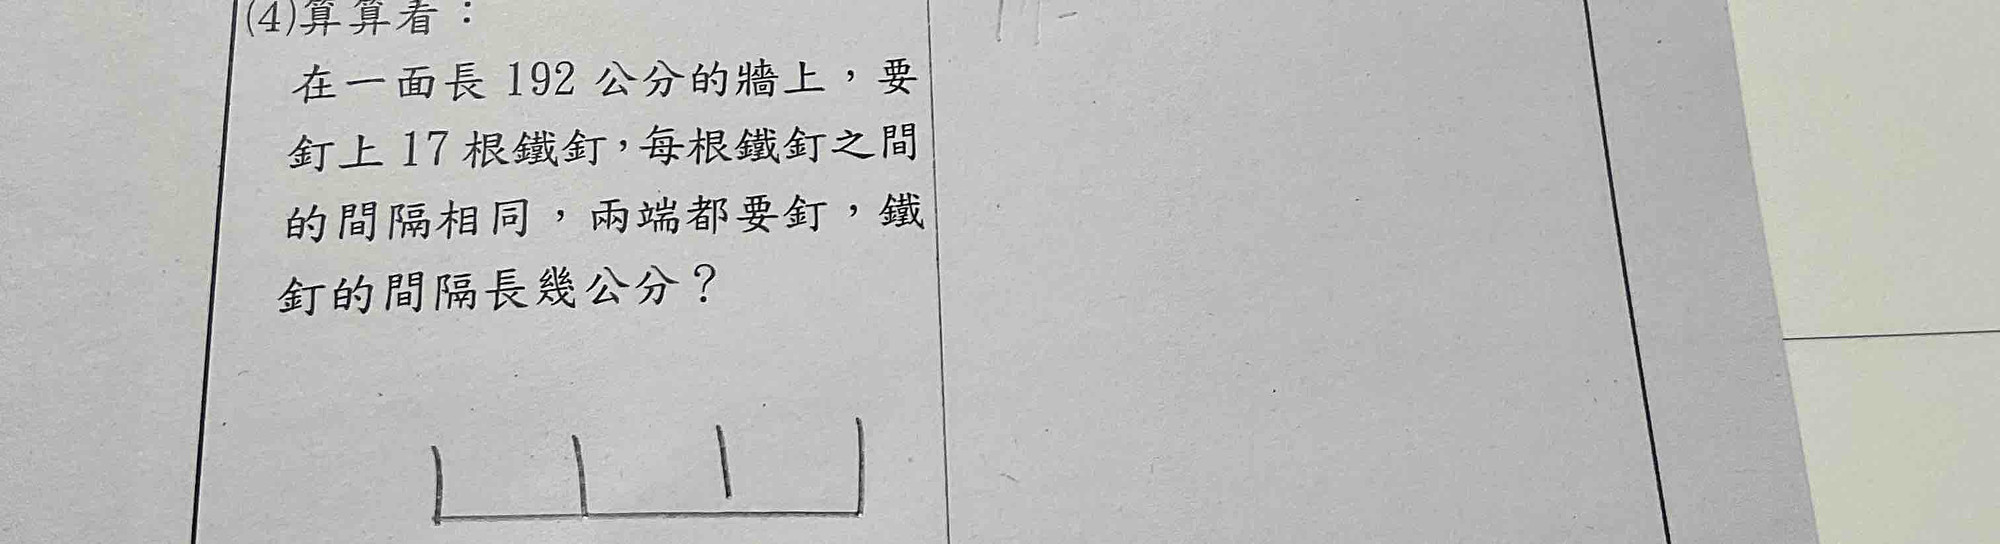 (4)算算看：
在一面長 192 公分的牆上，要
釘上 17 根鐵釘，每根鐵釘之間
的間隔相同，兩端都要釘，鐵
釘的間隔長幾公分？